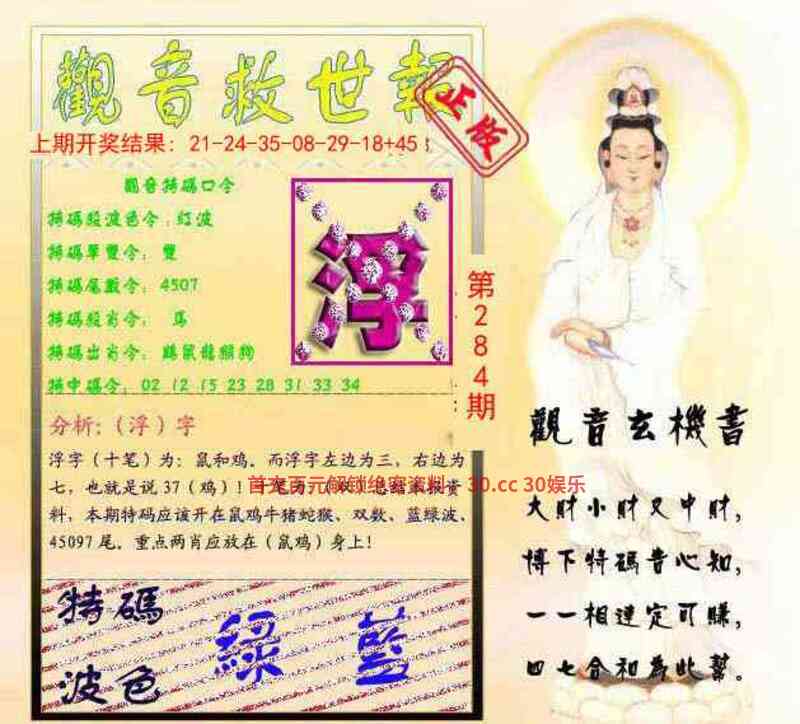 觀音救世報
正版
上期开奖结果：21-24-35-08-29-18+45
觀音特碼口令
特碼殺波色令：紅波
特碼單雙令： 雙
特碼尾數令： 4507
特碼殺肖令： 馬
特碼出肖令： 雞鼠龍猴狗
特中碼令： 02 12 15 23 28 31 33 34
浮
第284期
分析:（浮）字
浮字（十笔）为：鼠和鸡。而浮字左边为三，右边为
七，也就是说 37（鸡）！十笔为（双）总结本报资
料，本期特码应该开在鼠鸡牛猪蛇猴、双数、蓝绿波、
45097 尾。重点两肖应放在（鼠鸡）身上！
首充百元解锁绝密资料 30.cc 30娱乐
特碼
波色
綠 藍
觀音玄機書
大財小財又中財，
博下特碼音心知，
一一相連定可賺，
四七合和為此幫。